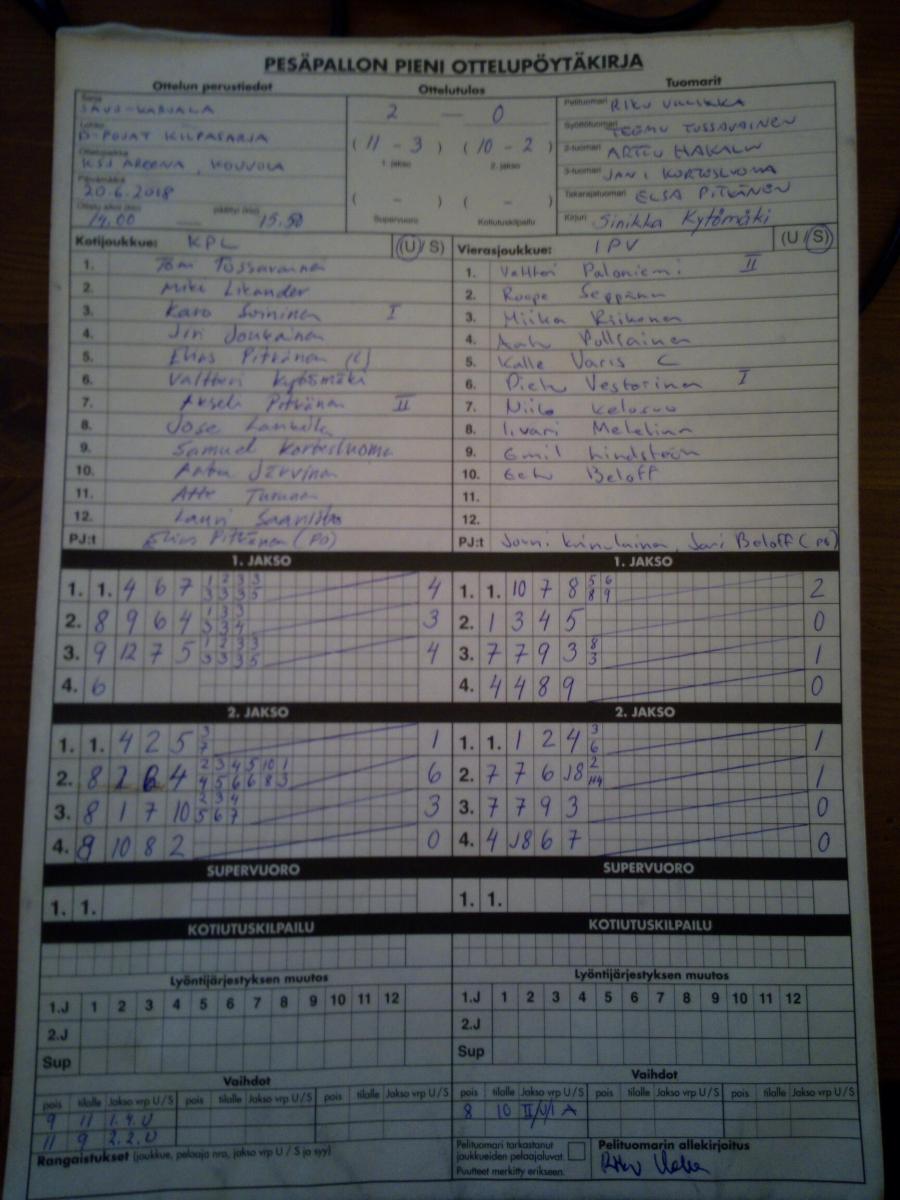 PESÄPALLON PIENI OTTELUPÖYTÄKIRJA
Ottelun perustiedot Ottelutulos Tuomarit
Sarja SAVO-KARJALA 2 — 0 Pelituomari RIKU
Lohko D-POJAT KILPASARJA (11 - 3) (10 - 2) Syöttötuomari TEEMU TUSSAVAINEN
1. jakso 2. jakso 2-tuomari ARTTU HAKALA
Ottelupaikka KSS AREENA, KOUVOLA 3-tuomari JANI KORTESLUOMA
Päivämäärä 20.6.2018 ( - ) ( - ) Takarajatuomari ELSA PITKÄNEN
Ottelu alkoi (klo) 14.00 päättyi (klo) 15.50 Supervuoro Kotiutuskilpailu Kirjuri Sinikka Kytömäki
Kotijoukkue: KPL (U / S) Vierasjoukkue: IPV (U / S)
1. Tomi Tussavainen 1. Valtteri Paloniemi II
2. Miki Likander 2. Roope Seppänen
3. Karo Soininen I 3. Miika Riikonen
4. Jiri Joukainen 4. Aatu Pulliainen
5. Elias Pitkänen (C) 5. Kalle Varis C
6. Valtteri Kytömäki 6. Pietu Vestorinen I
7. Akseli Pitkänen II 7. Niilo Kelosuo
8. Jose 8. Iivari
9. Samuel Kortesluoma 9. Emil Lindström
10. Aatu Järvinen 10. Eetu Beloff
11. Atte Turunen 11.
12. Lauri 12.
PJ:t Elias Pitkänen (PÖ) PJ:t Jouni Jari Beloff (PÖ)
1. JAKSO 1. JAKSO
1. 1. 4 6 7 1 2 3 3 4 1. 1. 10 7 8 5 6 2
3 3 3 5 8 9
2. 8 9 6 4 1 3 3 3 2. 1 3 4 5 0
3 3 4
3. 9 12 7 5 1 2 3 3 4 3. 7 7 9 3 8 1
3 3 3 5 3
4. 6 4. 4 4 8 9 0
2. JAKSO 2. JAKSO
1. 1. 4 2 5 3 1 1. 1. 1 2 4 3 1
7 6
2. 8 2 6 4 2 3 4 5 10 1 6 2. 7 7 6 J8 2 1
4 5 6 6 8 3
3. 8 1 7 10 2 3 4 3 3. 7 7 9 3 0
5 6 7
4. 9 10 8 2 0 4. 4 J8 6 7 0
SUPERVUORO SUPERVUORO
1. 1. 1. 1.
KOTIUTUSKILPAILU KOTIUTUSKILPAILU
Lyöntijärjestyksen muutos Lyöntijärjestyksen muutos
1.J 1 2 3 4 5 6 7 8 9 10 11 12 1.J 1 2 3 4 5 6 7 8 9 10 11 12
2.J 2.J
Sup Sup
Vaihdot Vaihdot
pois tilalle Jakso vrp U / S pois tilalle Jakso vrp U / S pois tilalle Jakso vrp U / S pois tilalle Jakso vrp U / S pois tilalle Jakso vrp U / S pois tilalle Jakso vrp U / S
9 11 1. 4. U 8 10
11 9 2. 2. U
Rangaistukset (joukkue, pelaaja nro, jakso vrp U / S ja syy) Pelituomari tarkastanut joukkueiden pelaajaluvat. Pelituomarin allekirjoitus
Puutteet merkitty erikseen.